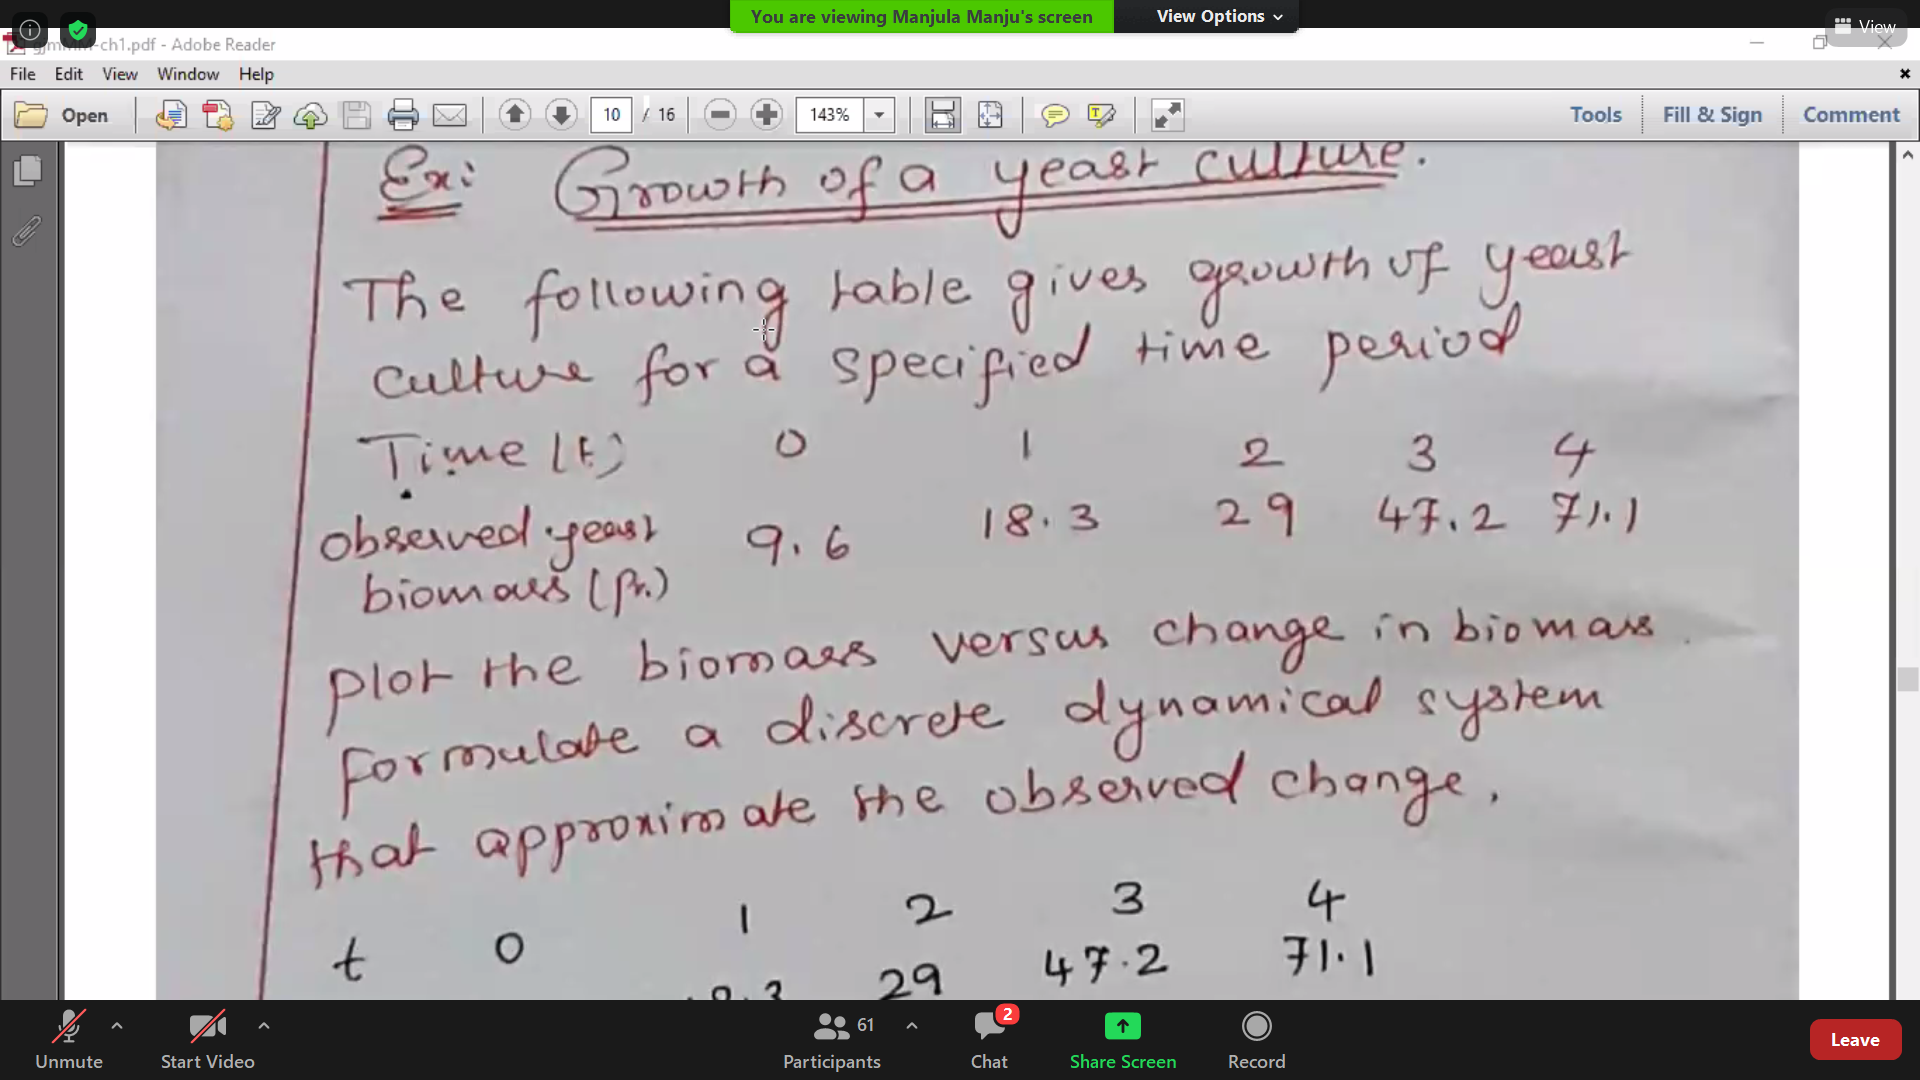 You are viewing Manjula Manju's screen
View Options
View
-ch1.pdf - Adobe Reader
File Edit View Window Help
Open
10 / 16
143%
Tools
Fill & Sign
Comment
Ex: Growth of a yeast culture.
The following table gives growth of yeast
culture for a specified time period
Time (t) 0 1 2 3 4
observed yeast 9.6 18.3 29 47.2 71.1
biomass (Pn)
plot the biomass versus change in biomass
formulate a discrete dynamical system
that approximate the observed change.
t 0 1 2 3 4
18.3 29 47.2 71.1
Unmute
Start Video
61
Participants
2
Chat
Share Screen
Record
Leave